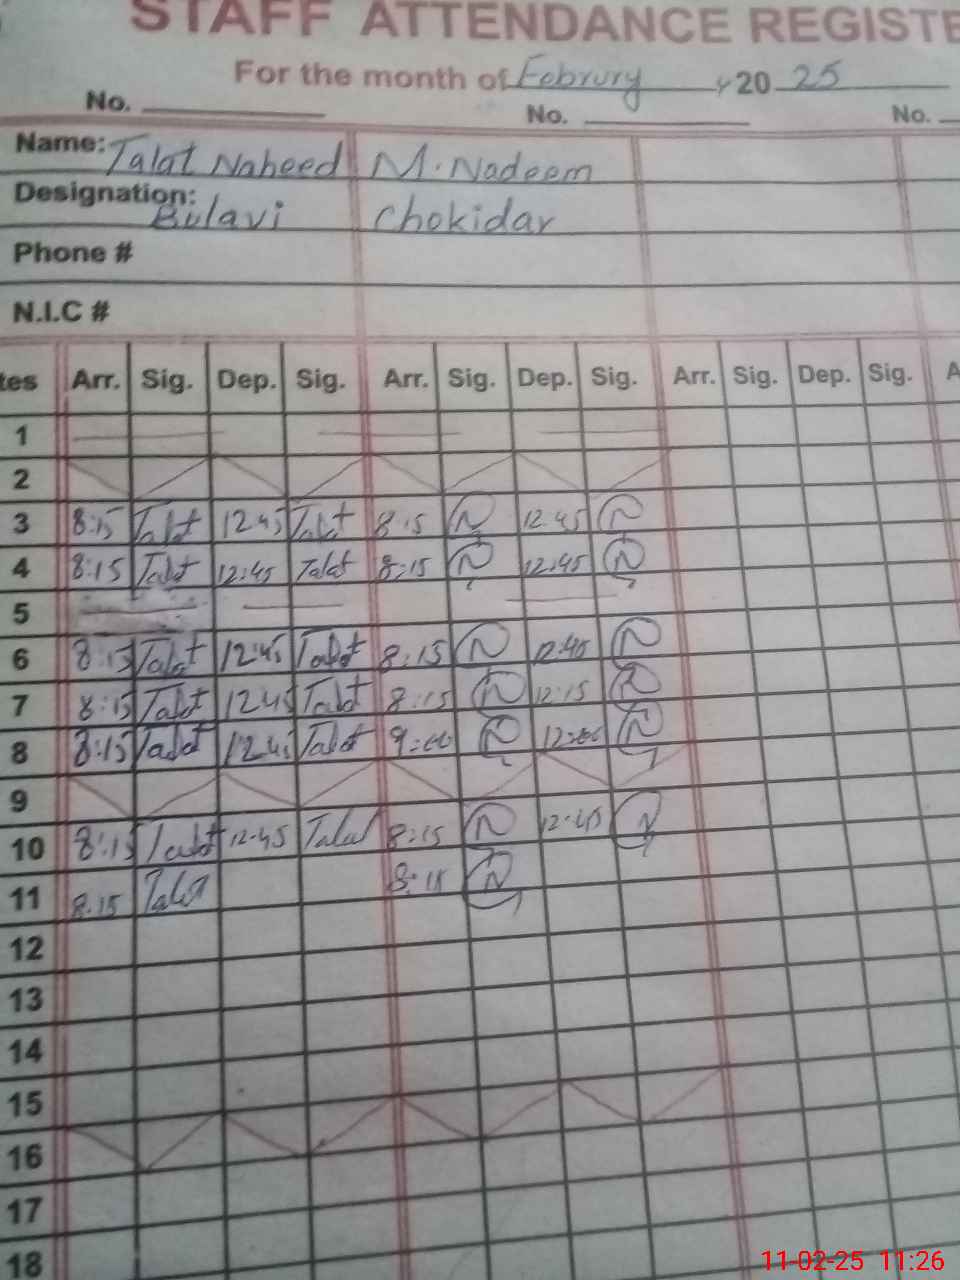 STAFF ATTENDANCE REGISTE
For the month of Februry 20 25
No. No. No.
Name: Talat Naheed M. Nadeem
Designation: Bulavi Chokidar
Phone #
N.I.C #
tes Arr. Sig. Dep. Sig. Arr. Sig. Dep. Sig. Arr. Sig. Dep. Sig. A
1
2
3 8:15 Talat 12 45 Talat 8:15 N 12.45 N
4 8:15 Talat 12:45 Talat 8:15 N 12:45 N
5
6 8:15 Talat 12:45 Talat 8:15 N 12:45 N
7 8:15 Talat 12 45 Talat 8:15 N 12:15 N
8 8:15 Talat 12 45 Talat 9:00 N 12:00 N
9
10 8:15 Talat 12.45 Talat 8:15 N 12:45 N
11 8.15 Talat 8:15 N
12
13
14
15
16
17
18
11-02-25 11:26